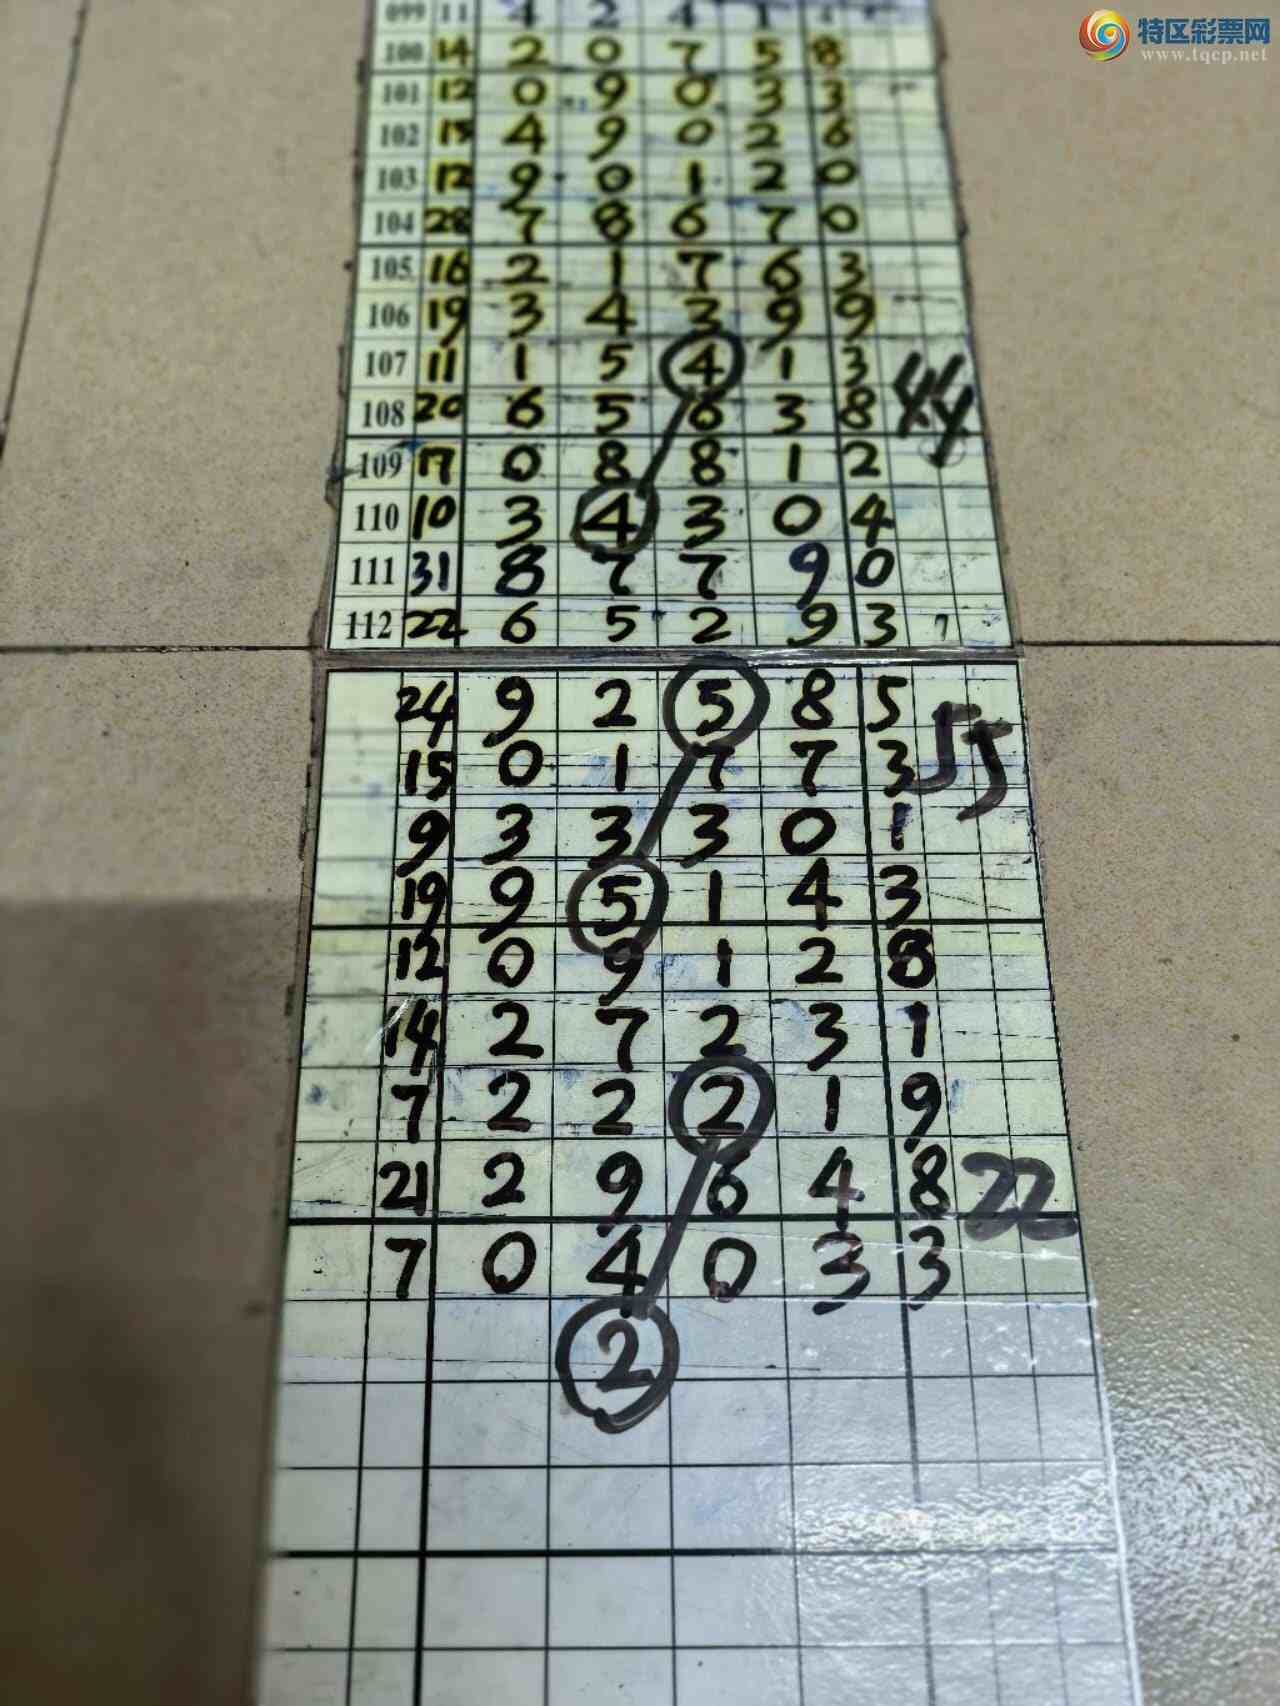 特区彩票网
www.tqcp.net
099 11 4 2 4 1
100 14 2 0 7 5 8
101 12 0 9 0 3 3
102 15 4 9 0 2 6
103 12 9 0 1 2 0
104 28 7 8 6 7 0
105 16 2 1 7 6 3
106 19 3 4 3 9 9
107 11 1 5 4 1 3
44
108 20 6 5 6 3 8
109 17 0 8 8 1 2
110 10 3 4 3 0 4
111 31 8 7 7 9 0
112 22 6 5 2 9 3
24 9 2 5 8 5
55
15 0 1 7 7 3
9 3 3 3 0 1
19 9 5 1 4 3
12 0 9 1 2 8
14 2 7 2 3 1
7 2 2 2 1 9
21 2 9 6 4 8 22
7 0 4 0 3 3
2